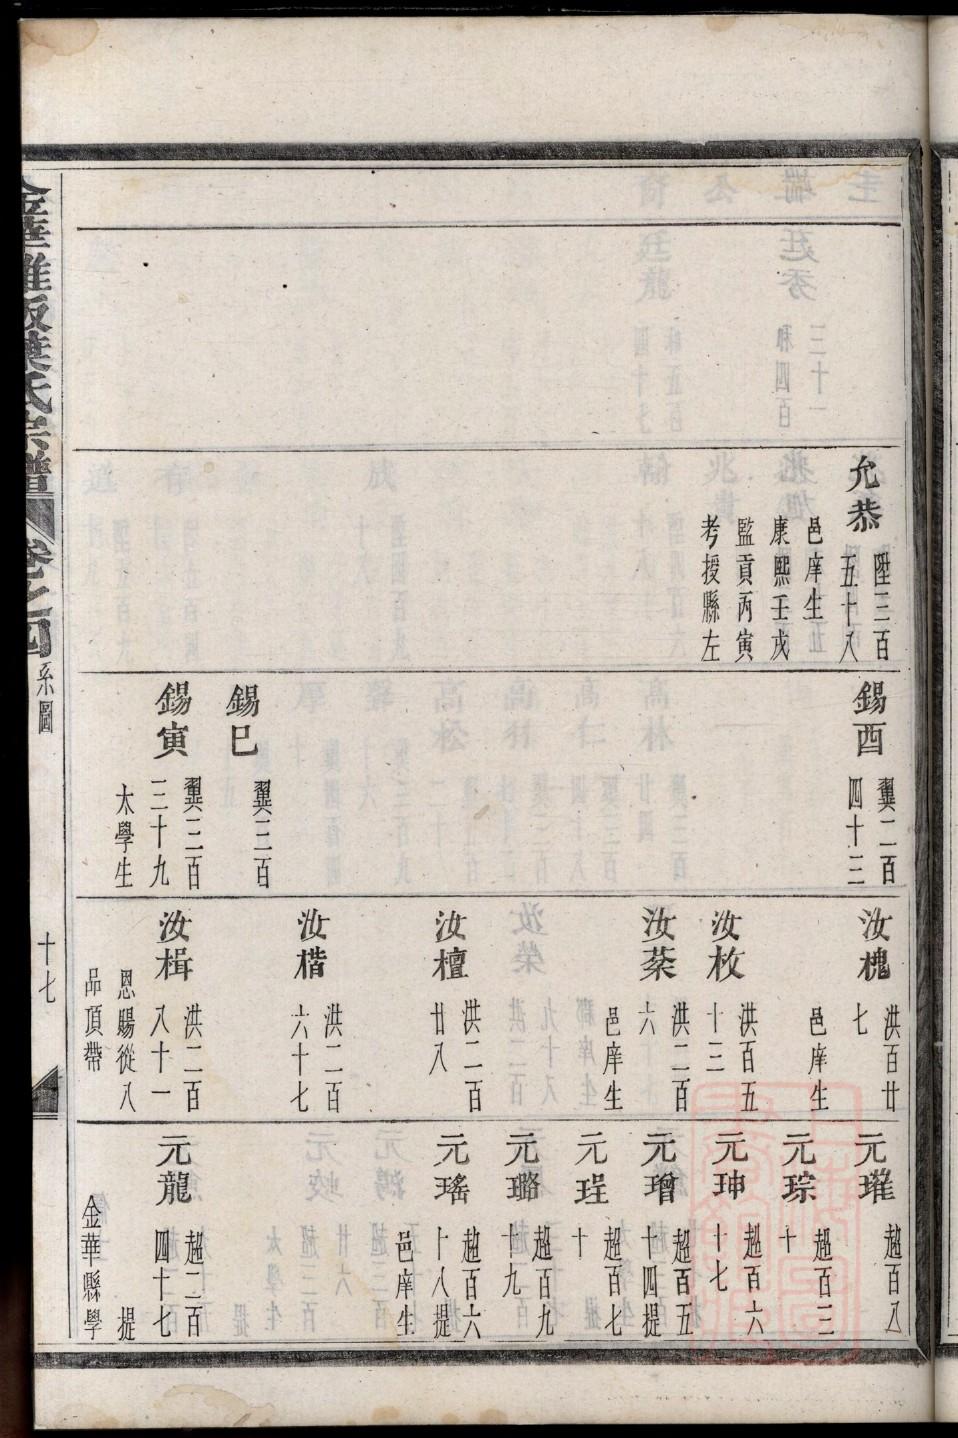 金華雅畈葉氏宗譜
卷之四
系圖
十七
允恭
陞三百
五十八
邑庠生
康熙壬戌
監貢丙寅
考授縣左
錫酉
翼二百
四十三
錫巳
翼三百
錫寅
翼三百
三十九
太學生
汝槐
洪百廿
七
邑庠生
汝枚
洪百五
十三
汝棻
洪二百
六
邑庠生
汝檀
洪二百
廿八
汝楷
洪二百
六十七
汝楫
洪二百
八十一
恩賜從八
品頂帶
元琟
趙百八
元琮
趙百三
十
元珅
趙百六
十七
元璔
趙百五
十四提
元珵
趙百七
十
元璐
趙百九
十九
元瑤
趙百六
十八提
邑庠生
元龍
趙二百
四十七
提
金華縣學